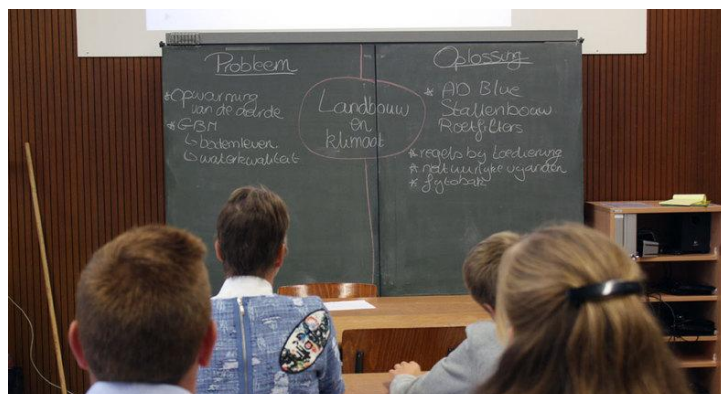 Probleem
*Opwarming
van de aarde
*GBM
↳bodemleven
↳waterkwaliteit
Landbouw
en
klimaat
Oplossing
* AD Blue
Stallenbouw
Roetfilters
*regels bij toediening
*natuurlijke vijanden
*fytobak